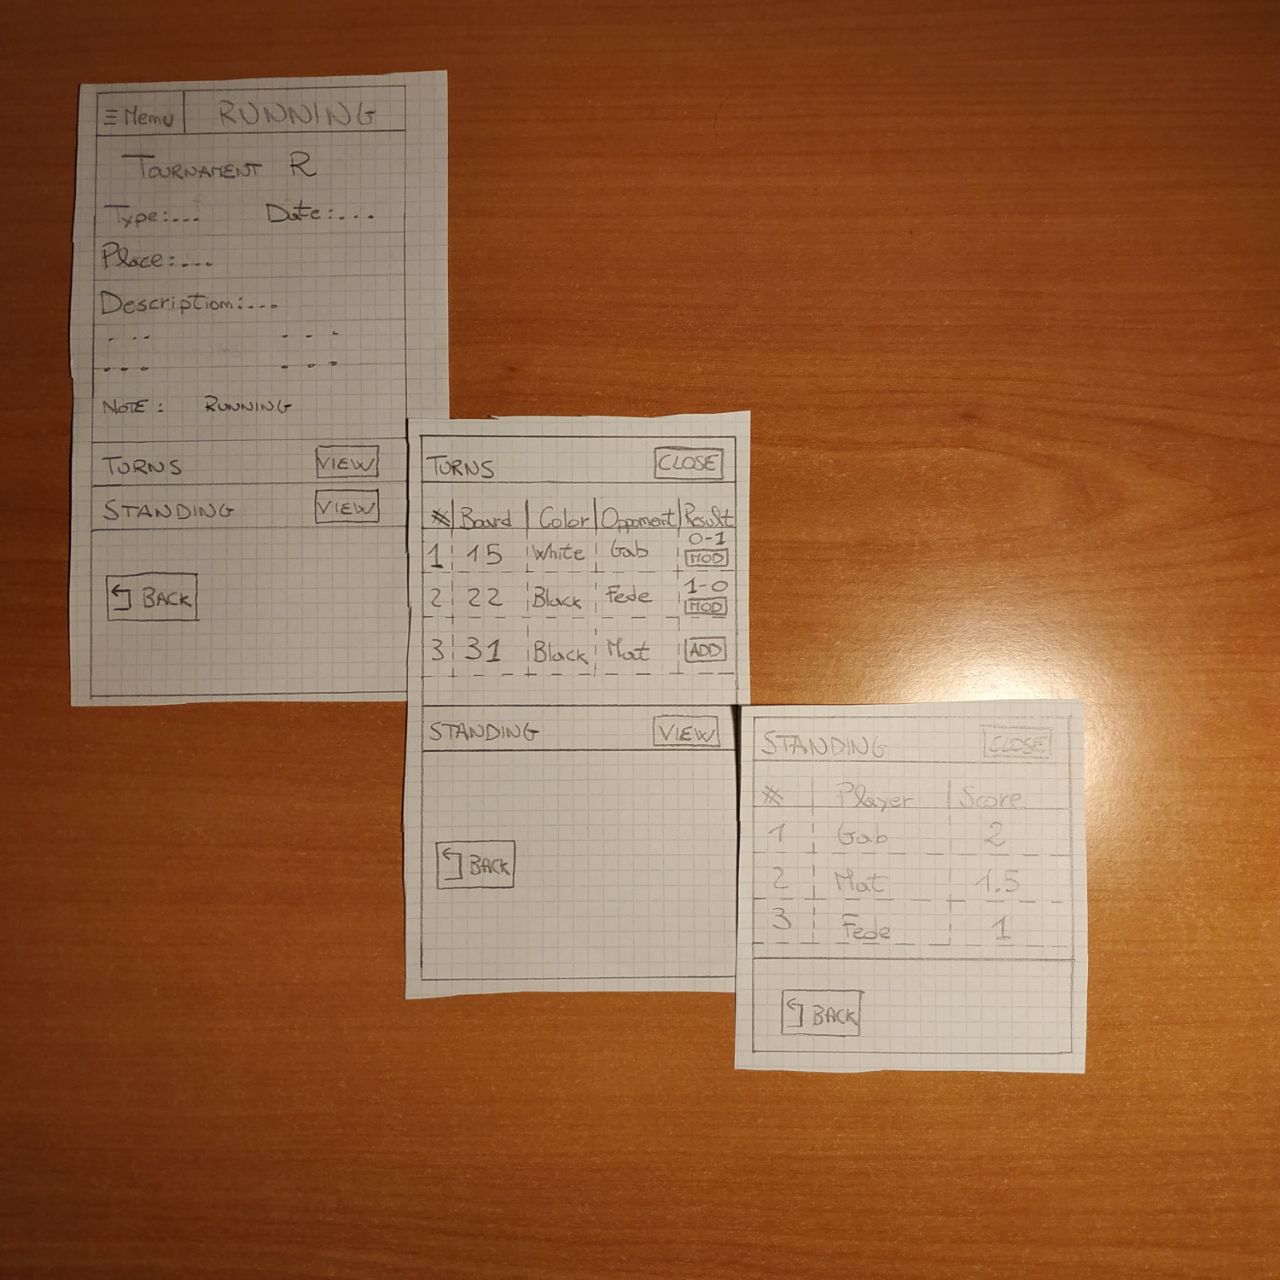 ≡ Menu RUNNING
TOURNAMENT R
Type:... Date:...
Place:...
Description:...
... ...
... ...
NOTE: RUNNING
TURNS VIEW
STANDING VIEW
BACK
TURNS CLOSE
# Board Color Opponent Result
1 15 White Gab 0-1 MOD
2 22 Black Fede 1-0 MOD
3 31 Black Mat ADD
STANDING VIEW
BACK
STANDING CLOSE
# Player Score
1 Gab 2
2 Mat 1.5
3 Fede 1
BACK